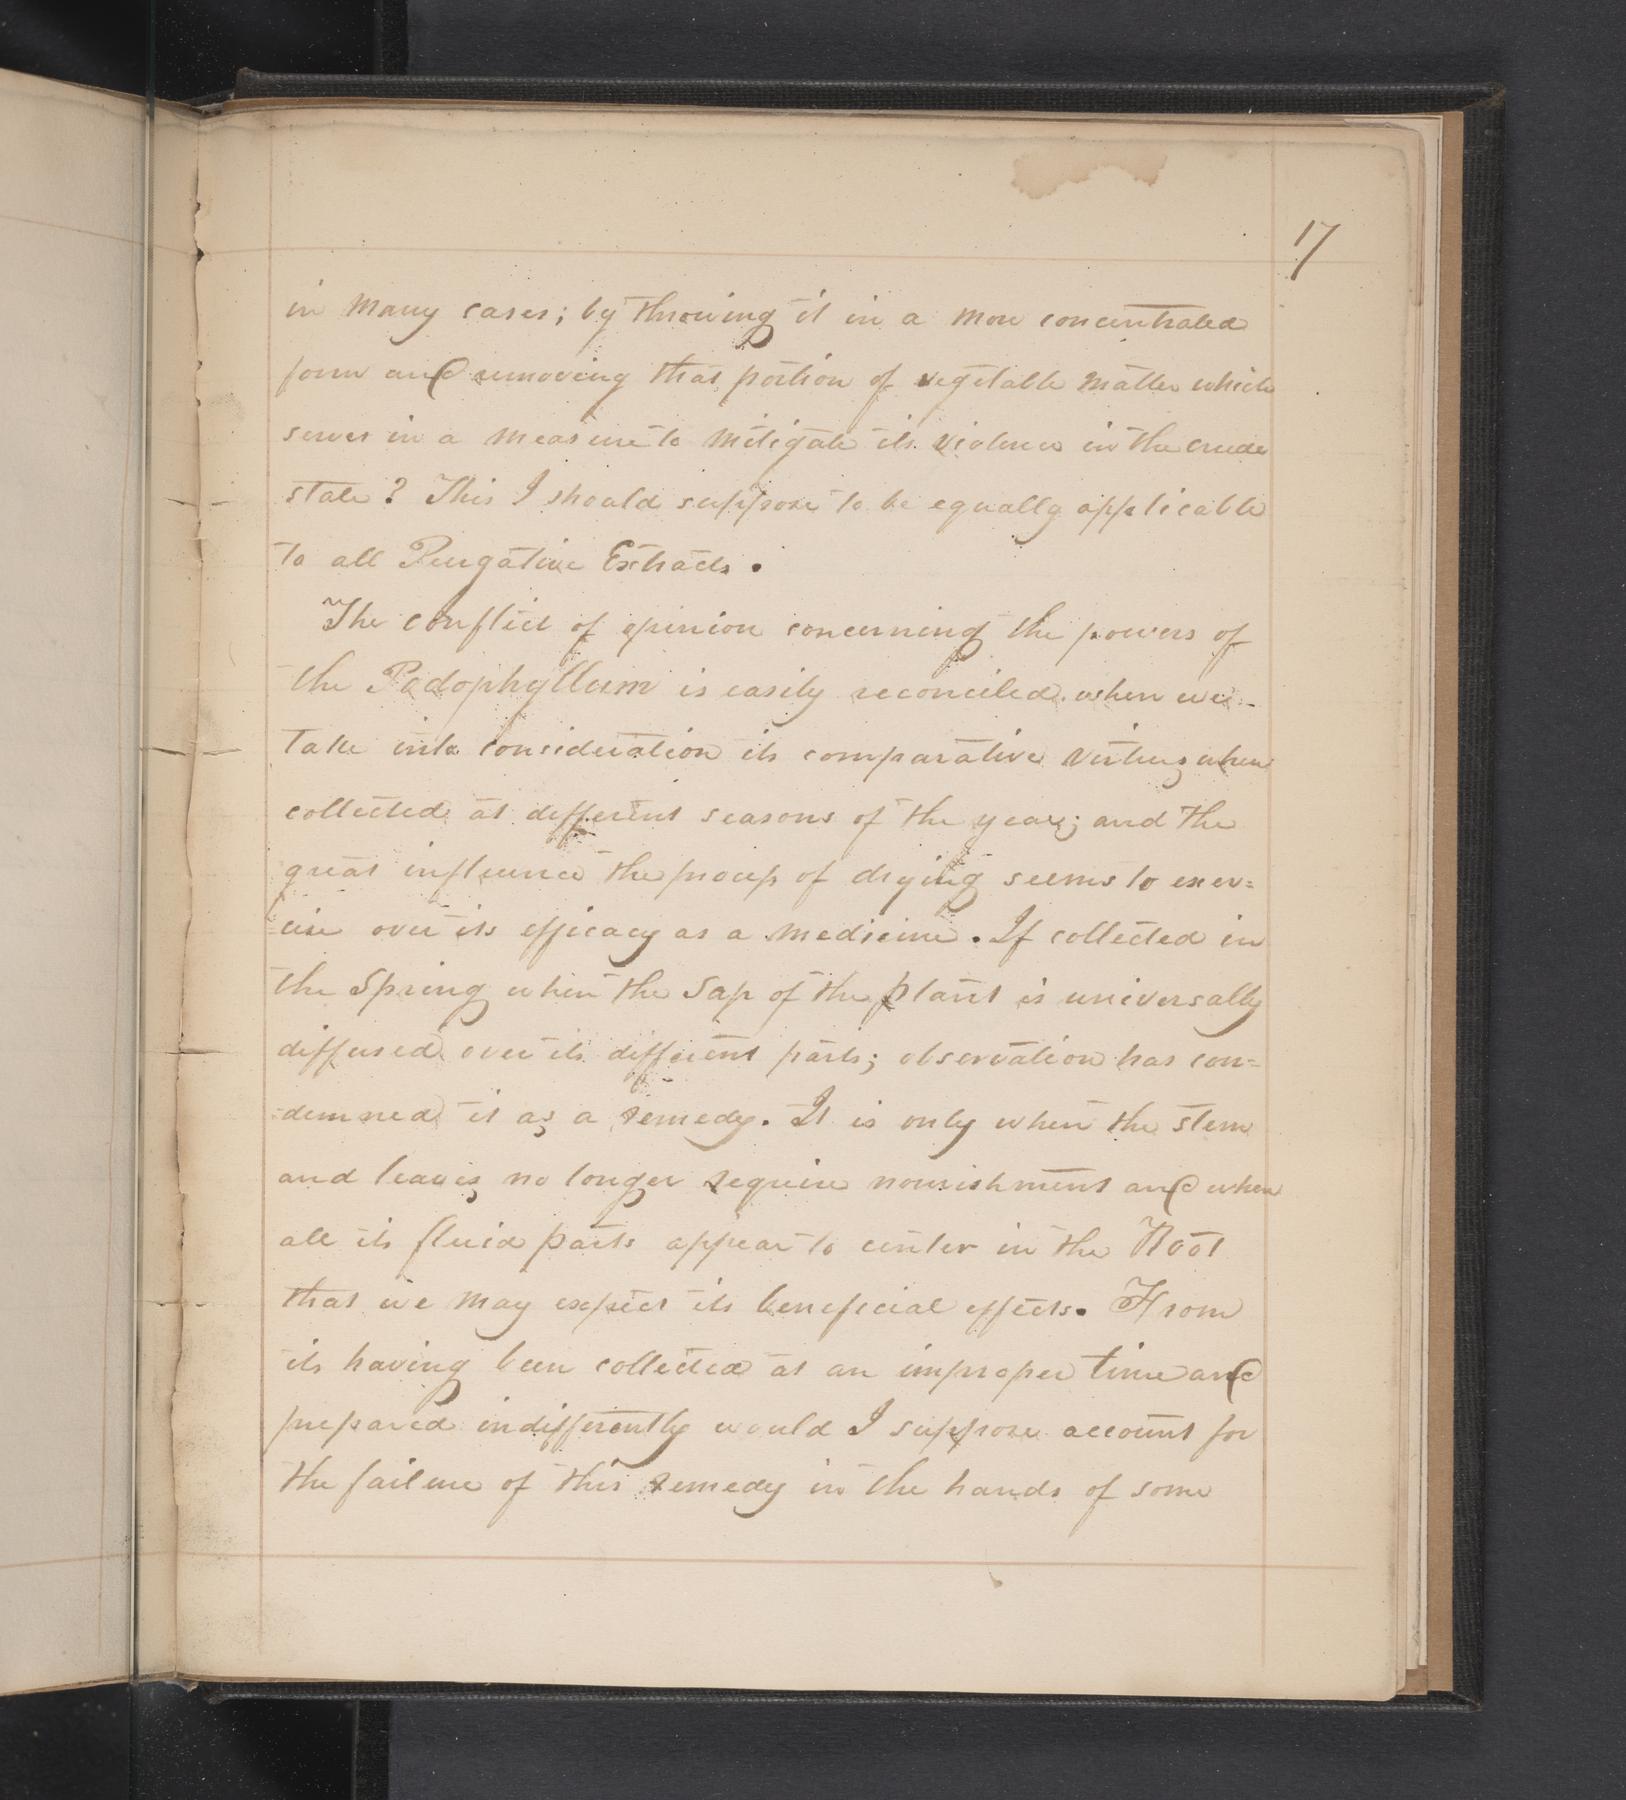 17
in many cases; by throwing it in a more concentrated
form and removing that portion of vegetable matter which
serves in a measure to mitigate its violence in the crude
state? This I should suppose to be equally applicable
to all Purgative Extracts.
The conflict of opinion concerning the powers of
the Podophyllum is easily reconciled when we
take into consideration its comparative virtues when
collected at different seasons of the year; and the
great influence the process of drying seems to exer=
=cise over its efficacy as a medicine. If collected in
the Spring when the Sap of the plant is universally
diffused over its different parts; observation has con=
=demned it as a remedy. It is only when the stem
and leaves no longer require nourishment and when
all its fluid parts appear to center in the Root
that we may expect its beneficial effects. From
its having been collected at an improper time and
prepared indifferently would I suppose account for
the failure of this remedy in the hands of some